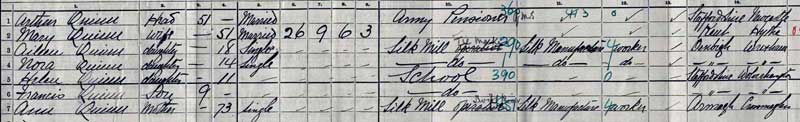 1 Arthur Quinn Head 51 - Married Army Pensioner 413 0 Staffordshire Newcastle
2 Mary Quinn Wife - 51 Married 26 9 6 3 Kent Hythe
3 Aileen Quinn daughter - 18 Single Silk Mill Silk Manufacture Worker Denbigh Wrexham
4 Nora Quinn daughter - 14 Single - do - - do - - do - - " -
5 Helen Quinn daughter - 11 School 390 0 Staffordshire Wolverhampton
6 Francis Quinn Son 9 - - do - - " -
7 Ann Quinn Mother - 73 Single Silk Mill Operative Silk Manufacture Worker Armagh